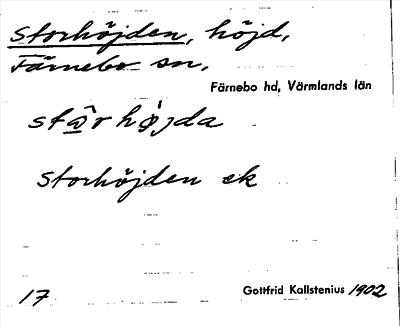 Storhöjden, höjd,
Färnebo sn,
Färnebo hd, Värmlands län
Storhöjden ek
17
Gottfrid Kallstenius 1902